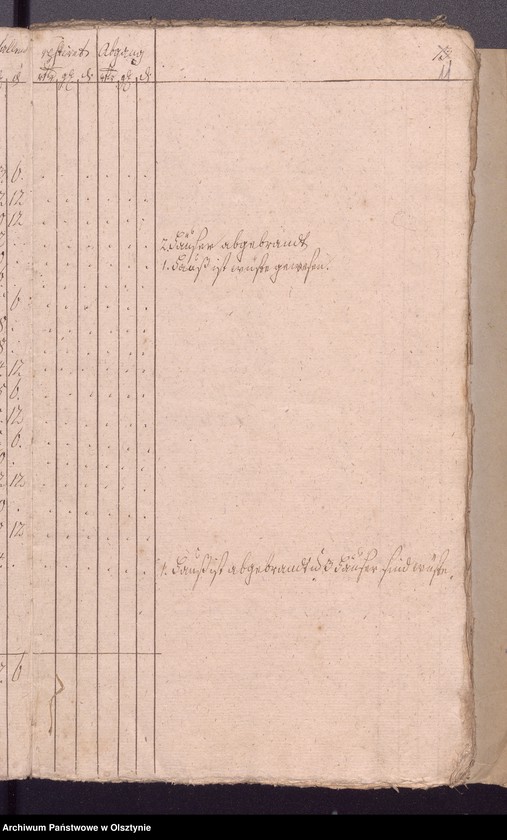 restiret Abgang
rthr. gr. d. rthr. gr. d.
11
6.
12
12
2. Häuser abgebrandt
1. Hauß ist wüste gewesen.
6
12
6.
12
6.
12
12
1. Hauß ist abgebrandt u. 3 Häuser sind wüste.
6
Archiwum Państwowe w Olsztynie